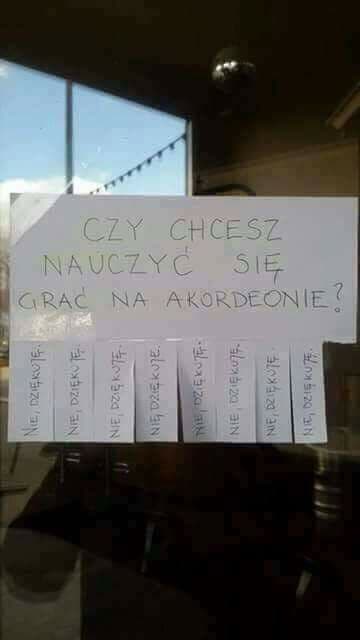 CZY CHCESZ
NAUCZYĆ SIĘ
GRAĆ NA AKORDEONIE?
NIE, DZIĘKUJĘ.
NIE, DZIĘKUJĘ.
NIE, DZIĘKUJĘ.
NIE, DZIĘKUJE.
NIE, DZIĘKUJĘ.
NIE, DZIĘKUJĘ.
NIE, DZIĘKUJĘ.
NIE, DZIĘKUJĘ.